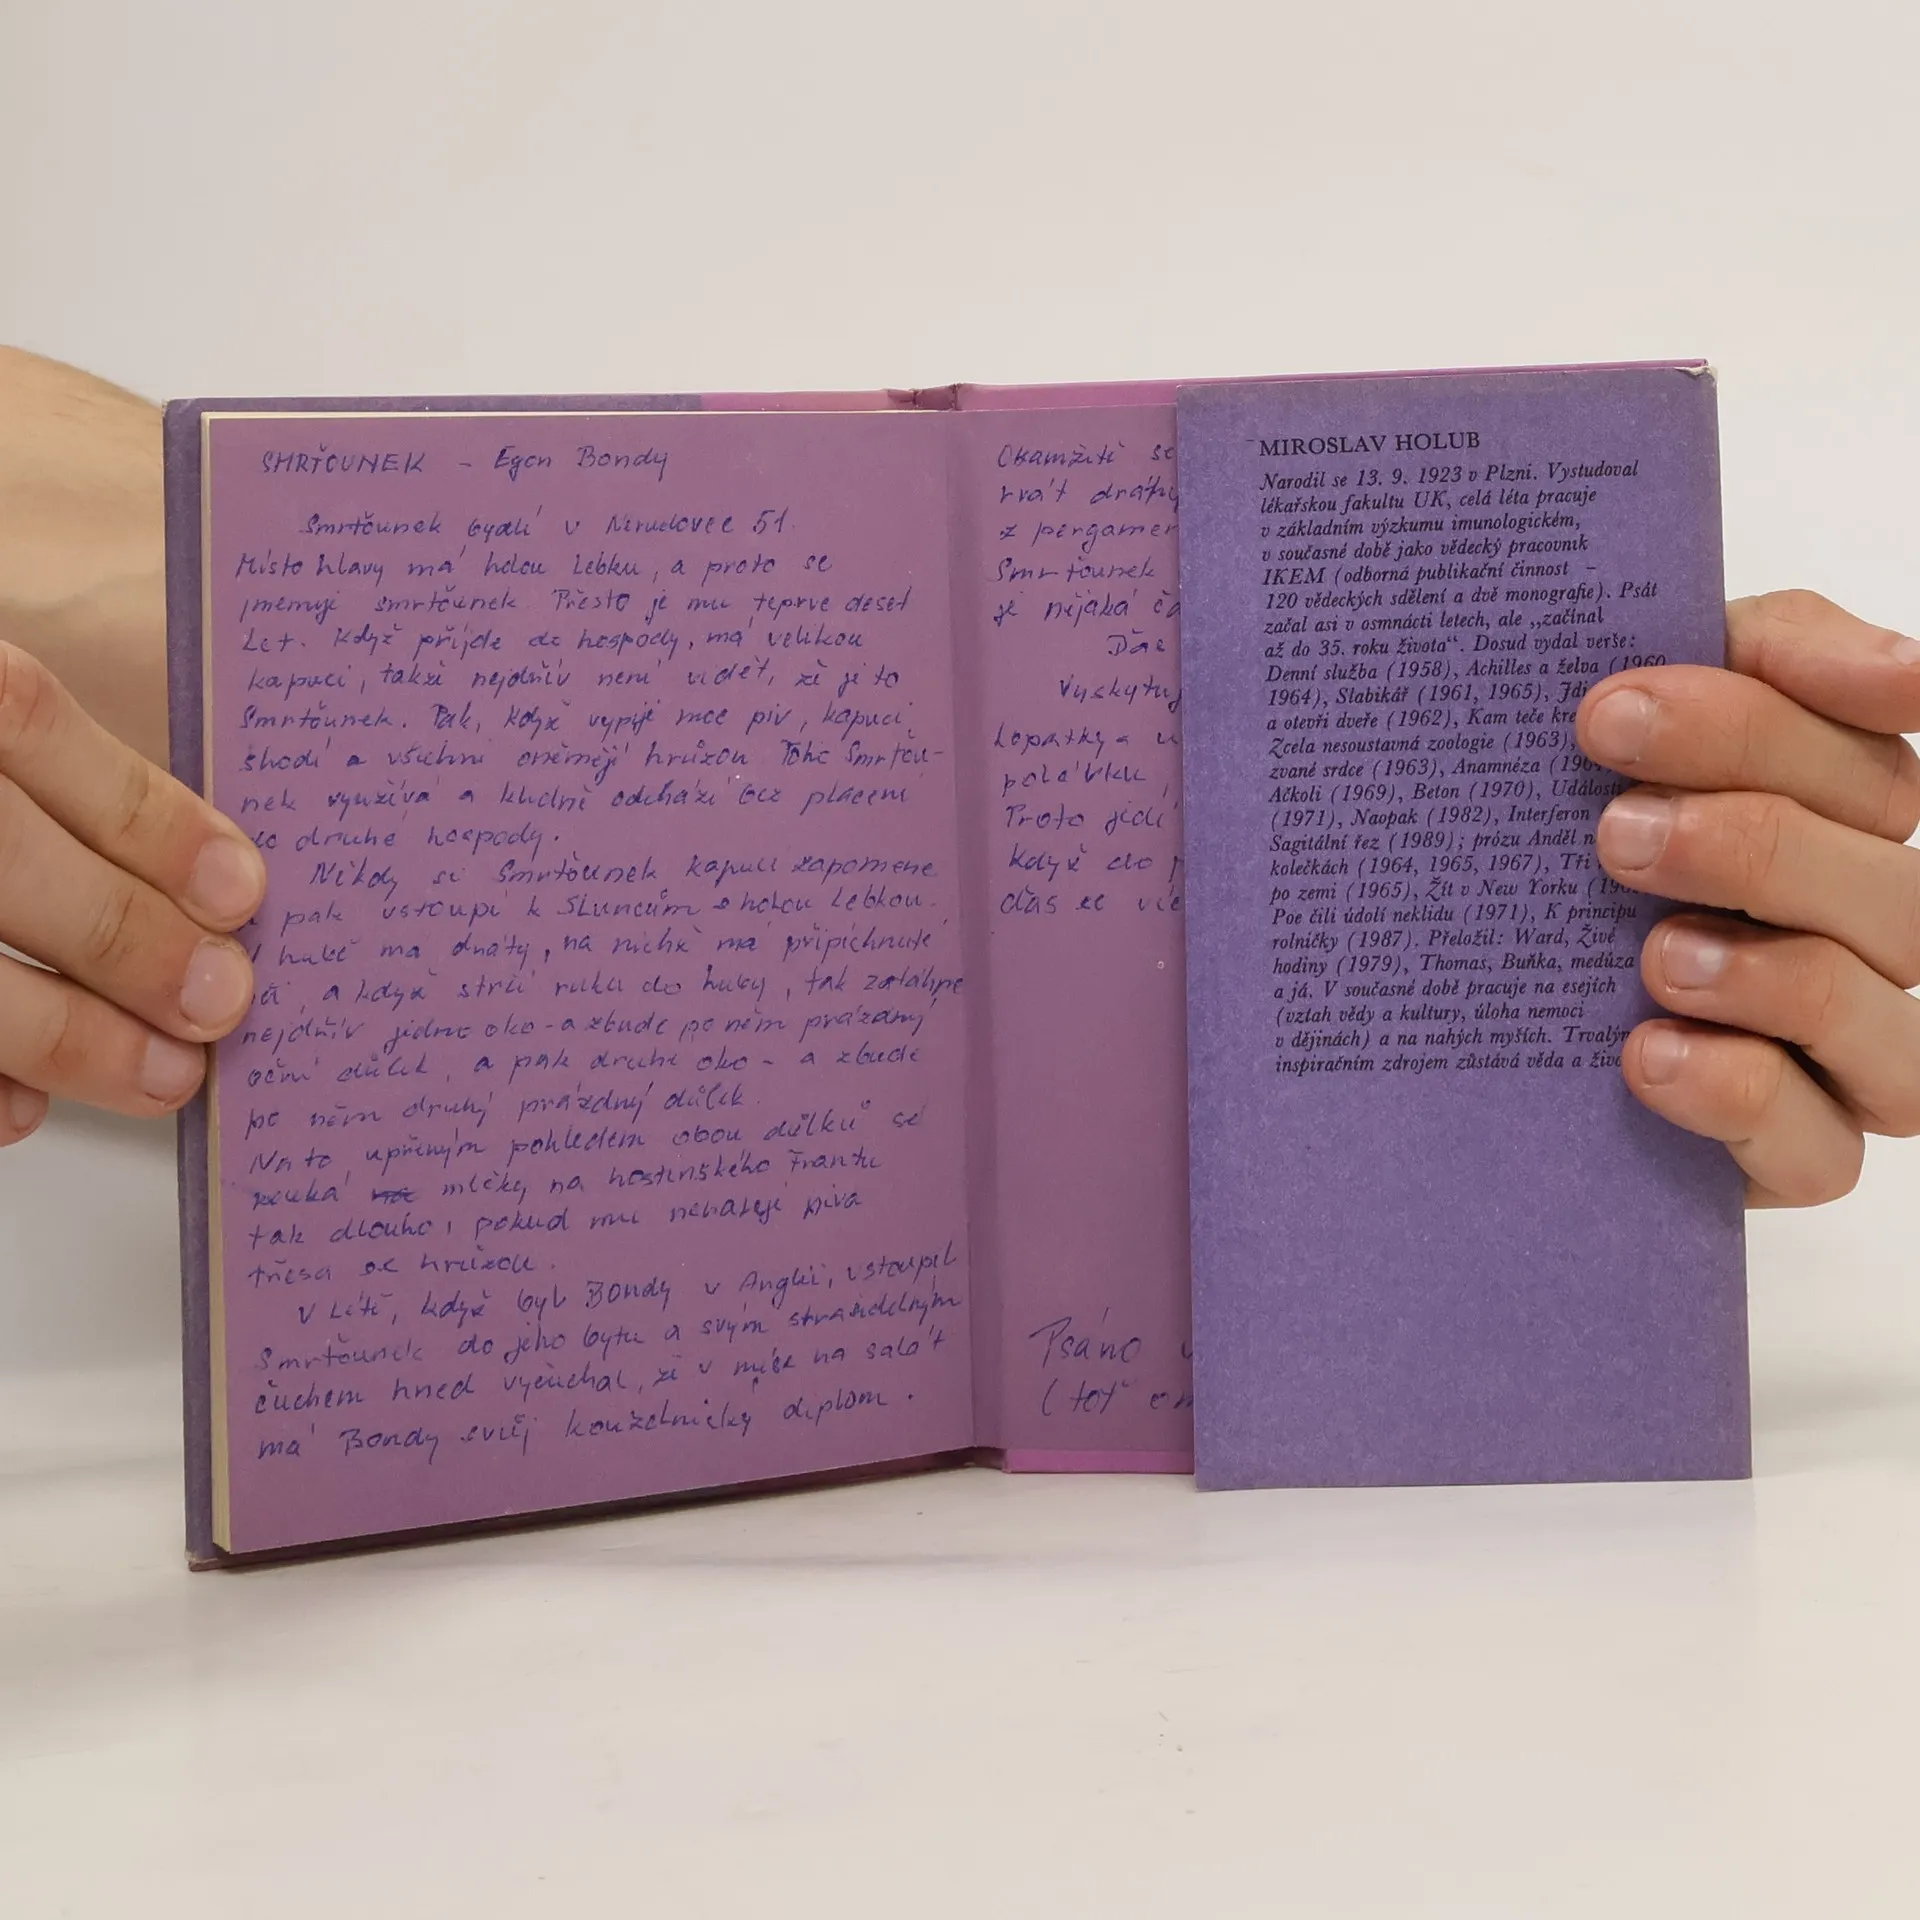 SMRŤOUNEK - Egon Bondy
Smrťounek bydlí v Nerudovce 51.
Místo hlavy má holou lebku, a proto se
jmenuje smrťounek. Přesto je mu teprve deset
let. Když příjde do hospody, má velikou
kapuci, takže nejdřív není vidět, že je to
Smrťounek. Pak, když vypije moc piv, kapuci
shodí a všichni oněmějí hrůzou. Toho Smrťou-
nek využívá a klidně odchází bez placení
do druhé hospody.
Někdy si Smrťounek kapuci zapomene
a pak vstoupí k Sluncům s holou lebkou.
V hubě má dráty, na nichž má připíchnuté
oči, a když strčí ruku do huby, tak zatáhne
nejdřív jedno oko - a zbude po něm prázdný
oční důlek, a pak druhé oko - a zbude
po něm druhý prázdný důlek.
Na to upřeným pohledem obou důlků se
kouká mlčky na hostinského Frantu
tak dlouho, pokud mu nenaleje piva
třesa se hrůzou.
V létě, když byl Bondy v Anglii, vstoupil
Smrťounek do jeho bytu a svým strašidelným
čuchem hned vyčuchal, že v míse na salát
má Bondy svůj kouzelnický diplom.
Okamžitě se
rvát dráty
z pergamen
Smrťounek
je nějaká
Ďas
Vyskytuj
lopatky a
polévku,
Proto jídí
když do
ďas se
Psáno v
(toť
MIROSLAV HOLUB
Narodil se 13. 9. 1923 v Plzni. Vystudoval
lékařskou fakultu UK, celá léta pracuje
v základním výzkumu imunologickém,
v současné době jako vědecký pracovník
IKEM (odborná publikační činnost –
120 vědeckých sdělení a dvě monografie). Psát
začal asi v osmnácti letech, ale „začínal
až do 35. roku života“. Dosud vydal verše:
Denní služba (1958), Achilles a želva (1960,
1964), Slabikář (1961, 1965), Jdi
a otevři dveře (1962), Kam teče kre
Zcela nesoustavná zoologie (1963),
zvané srdce (1963), Anamnéza (1964
Ačkoli (1969), Beton (1970), Události
(1971), Naopak (1982), Interferon
Sagitální řez (1989); prózu Anděl n
kolečkách (1964, 1965, 1967), Tři
po zemi (1965), Žít v New Yorku (196
Poe čili údolí neklidu (1971), K principu
rolničky (1987). Přeložil: Ward, Živé
hodiny (1979), Thomas, Buňka, medúza
a já. V současné době pracuje na esejích
(vztah vědy a kultury, úloha nemocí
v dějinách) a na nahých myších. Trvalým
inspiračním zdrojem zůstává věda a živo